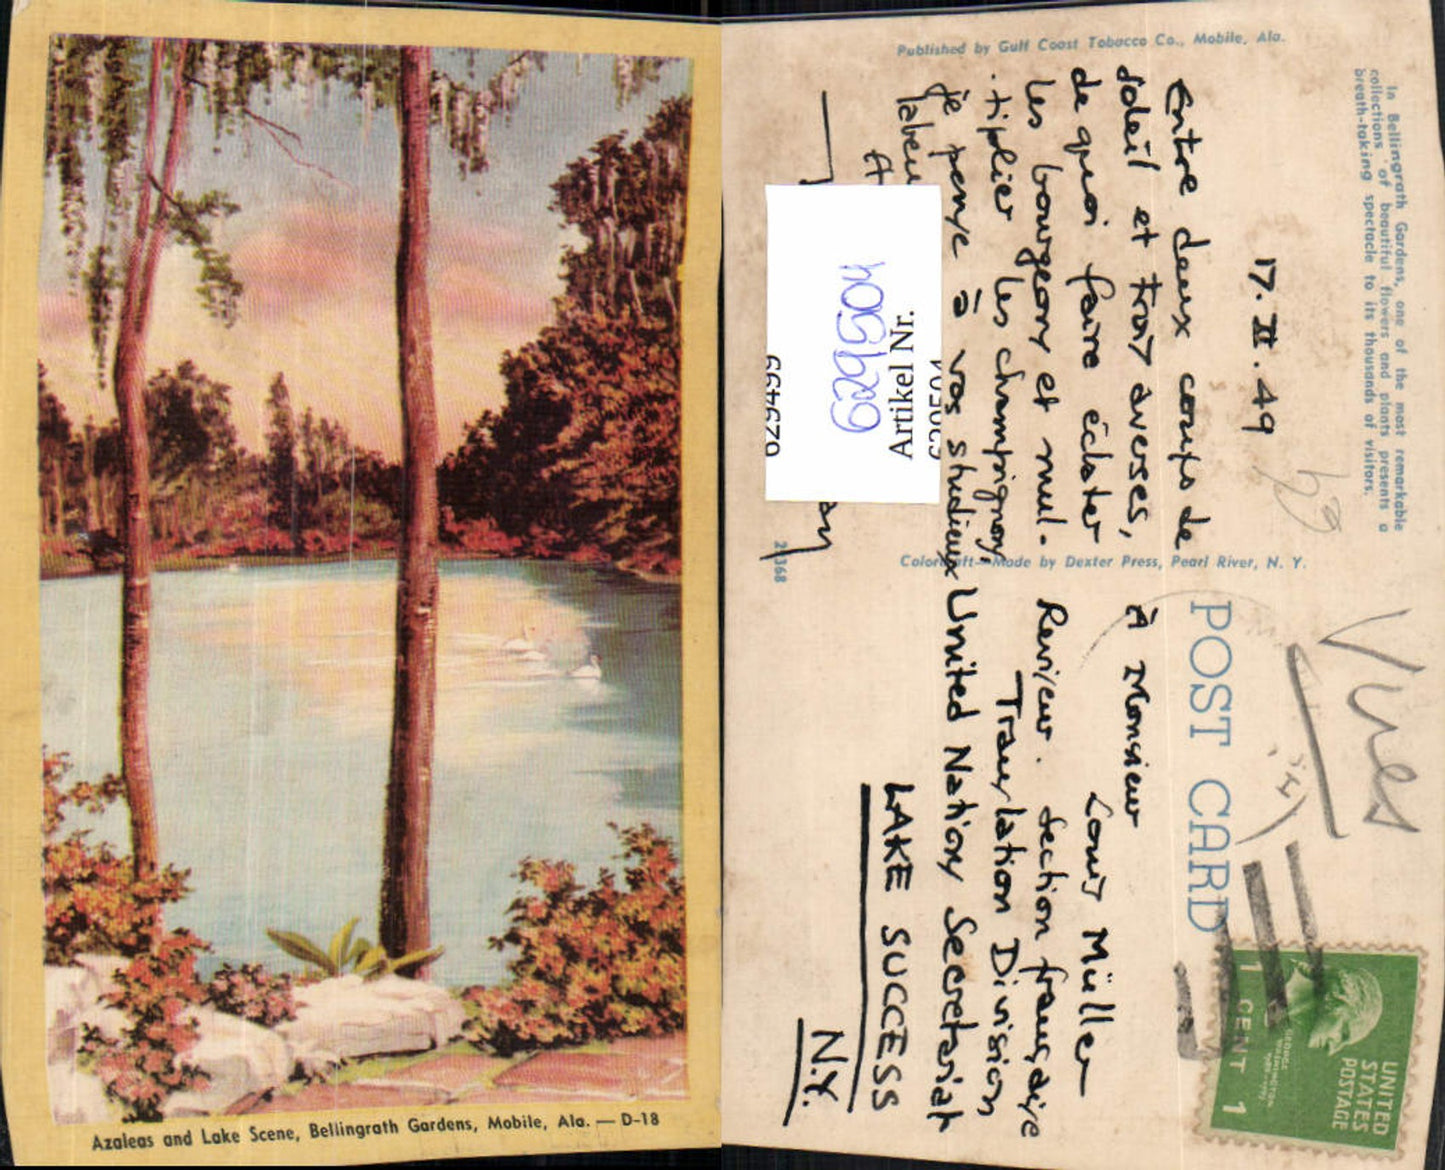 Azaleas and Lake Scene, Bellingrath Gardens, Mobile, Ala. — D-18
In Bellingrath Gardens, one of the most remarkable
collections of beautiful flowers and plants presents a
breath-taking spectacle to its thousands of visitors.
Published by Gulf Coast Tobacco Co., Mobile, Ala.
17. II. 49
Entre deux coups de
soleil et trois averses,
de quoi faire éclater
les bourgeons et mul-
tiplier les champignons,
je pense à vos studieux
labeu
629504
Artikel Nr.
629504
629499
Colorcraft—Made by Dexter Press, Pearl River, N. Y.
POST CARD
UNITED
STATES
POSTAGE
1 CENT 1
À Monsieur
Louis Müller
Reviseur. Section française
Translation Division
United Nations Secretariat
LAKE SUCCESS
N.Y.